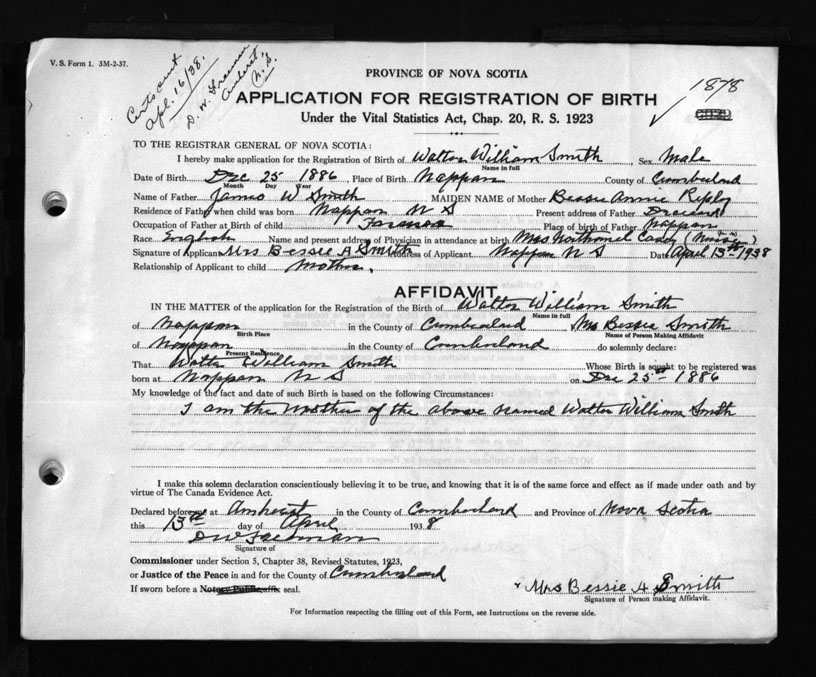 V. S. Form 1. 3M-2-37.
Apl. 16/38.
D. W. Freeman
Amherst,
N.S.
1878
PROVINCE OF NOVA SCOTIA
APPLICATION FOR REGISTRATION OF BIRTH
Under the Vital Statistics Act, Chap. 20, R. S. 1923
TO THE REGISTRAR GENERAL OF NOVA SCOTIA:
I hereby make application for the Registration of Birth of Walton William Smith, Sex Male
Name in full
Date of Birth Dec 25 1886, Place of Birth Nappan County of Cumberland
Month Day Year
Name of Father James W Smith MAIDEN NAME of Mother Bessie Annie Ripley
Residence of Father when child was born Nappan N S Present address of Father
Occupation of Father at Birth of child Farmer Place of birth of Father Nappan
Race English Name and present address of Physician in attendance at birth Mrs Nathaniel
Signature of Applicant Mrs Bessie A Smith Address of Applicant Nappan N S Date April 13th 1938
Relationship of Applicant to child Mother.
AFFIDAVIT
IN THE MATTER of the application for the Registration of the Birth of Walton William Smith
Name in full
of Nappan in the County of Cumberland Mrs Bessie Smith
Birth Place Name of Person Making Affidavit
of Nappan in the County of Cumberland do solemnly declare:
Present Residence
That Walton William Smith Whose Birth is sought to be registered was
born at Nappan N S on Dec 25th 1886
My knowledge of the fact and date of such Birth is based on the following Circumstances:
I am the Mother of the above named Walton William Smith
I make this solemn declaration conscientiously believing it to be true, and knowing that it is of the same force and effect as if made under oath and by
virtue of The Canada Evidence Act.
Declared before me at Amherst in the County of Cumberland and Province of Nova Scotia
this 13th day of April 1938
D W Freeman
Signature of
Commissioner under Section 5, Chapter 38, Revised Statutes, 1923,
or Justice of the Peace in and for the County of Cumberland
If sworn before a Notary Public affix seal.
Mrs Bessie A Smith
Signature of Person making Affidavit.
For Information respecting the filling out of this Form, see Instructions on the reverse side.